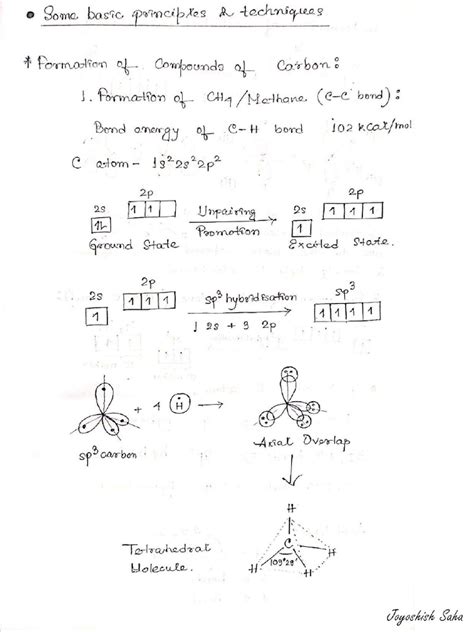 • Some basic principles & techniques
* Formation of Compounds of Carbon:
1. Formation of CH4/Methane (C-C bond):
Bond energy of C-H bond 102 kcal/mol
C atom - 1s²2s²2p²
2p 2p
2s 1 1 Unpairing 2s 1 1 1
1L Promotion 1
Ground State Excited State.
2p sp³
2s 1 1 1 sp³ hybridisation 1 1 1 1
1 1 2s + 3 2p
+ 4 H →
sp³ carbon Axial Overlap
H
C
H
Tetrahedral 109°28'
Molecule. H H
Joyoshish Saha